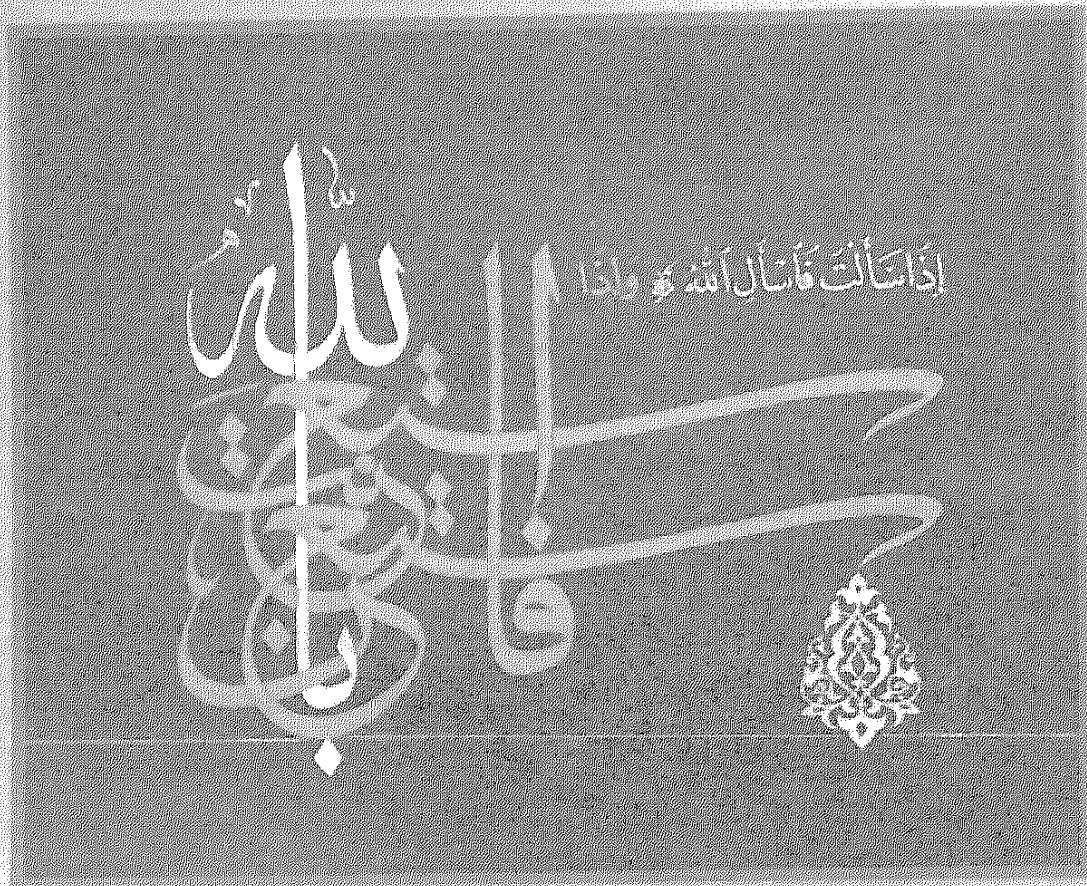 إِذَا سَأَلْتَ فَاسْأَلِ اللّٰهَ وَإِذَا
استعنت
فاستعن
بِاللّٰهِ